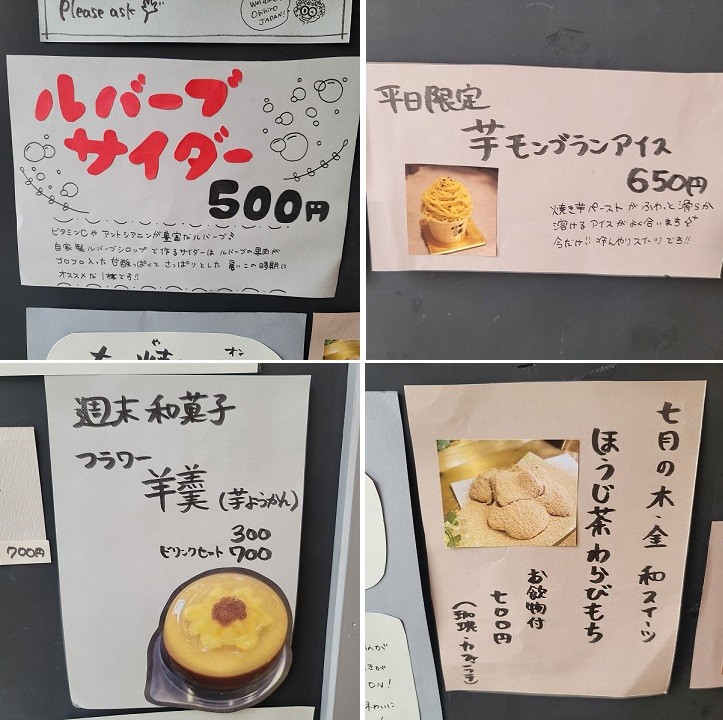 Please ask
Obihiro
JAPAN!
ルバーブ
サイダー
500円
ビタミンCや アントシアニンが豊富なルバーブ♪
自家製ルバーブシロップで作るサイダーは ルバーブの果肉が
ゴロゴロ入った 甘酸っぱくて さっぱりとした 暑いこの時期に
オススメな 1杯です!!
平日限定
芋モンブランアイス
650円
焼き芋ペーストが ふわっと滑らか
溶けるアイスがよく合います
今だけ!! 冷んやりスイーツです!!
週末 和菓子
フラワー
羊羹 (芋ようかん)
300
ドリンクセット 700
700円
七月の木・金 和スイーツ
ほうじ茶わらびもち
お飲物付
七〇〇円
ON!